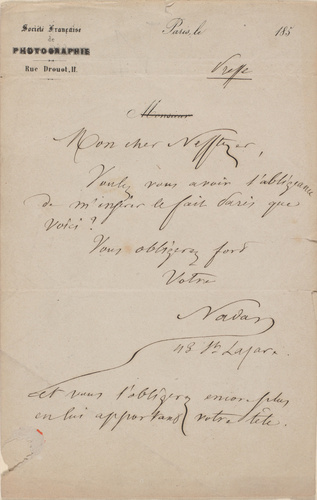 Société Française
de
PHOTOGRAPHIE
Rue Drouot, 11.
Paris, le 185
Presse
Monsieur
Mon cher Nefftzer,
Voulez vous avoir l'obligeance
de m'insérer le fait Paris que
voici?
Vous obligerez fort
Votre
Nadar
48 St Lazare.
et vous l'obligerez encore plus
en lui apportant votre tête.